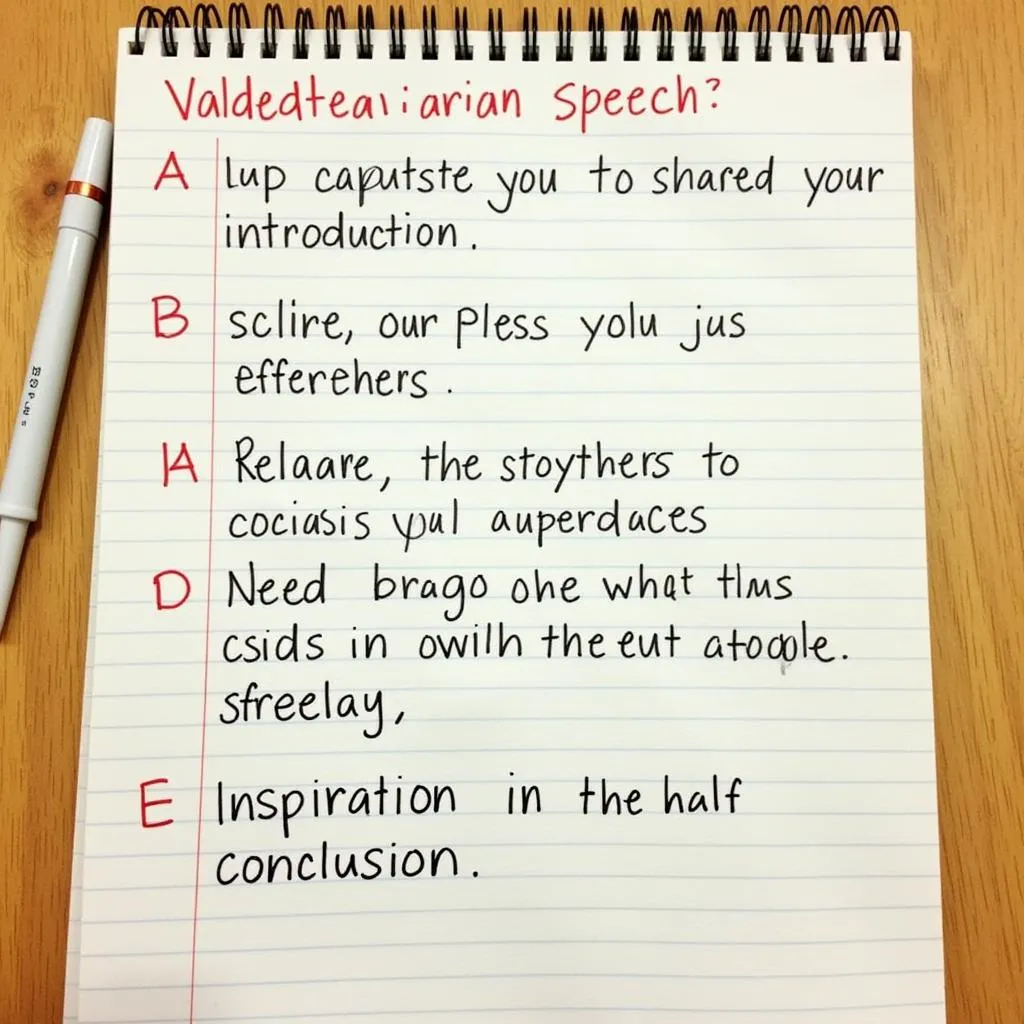 Valdedteaiiarian Speech?
A lup caputste you to shared your
introduction.
B sclire, our Pless yolu jus
efferehers.
A Relaare, the stoythers to
cociasis yul auperdaces
D Need brago ohe what thus
csids in owilh the eut atoople.
sfreelay,
E Inspiration in the half
conclusion.